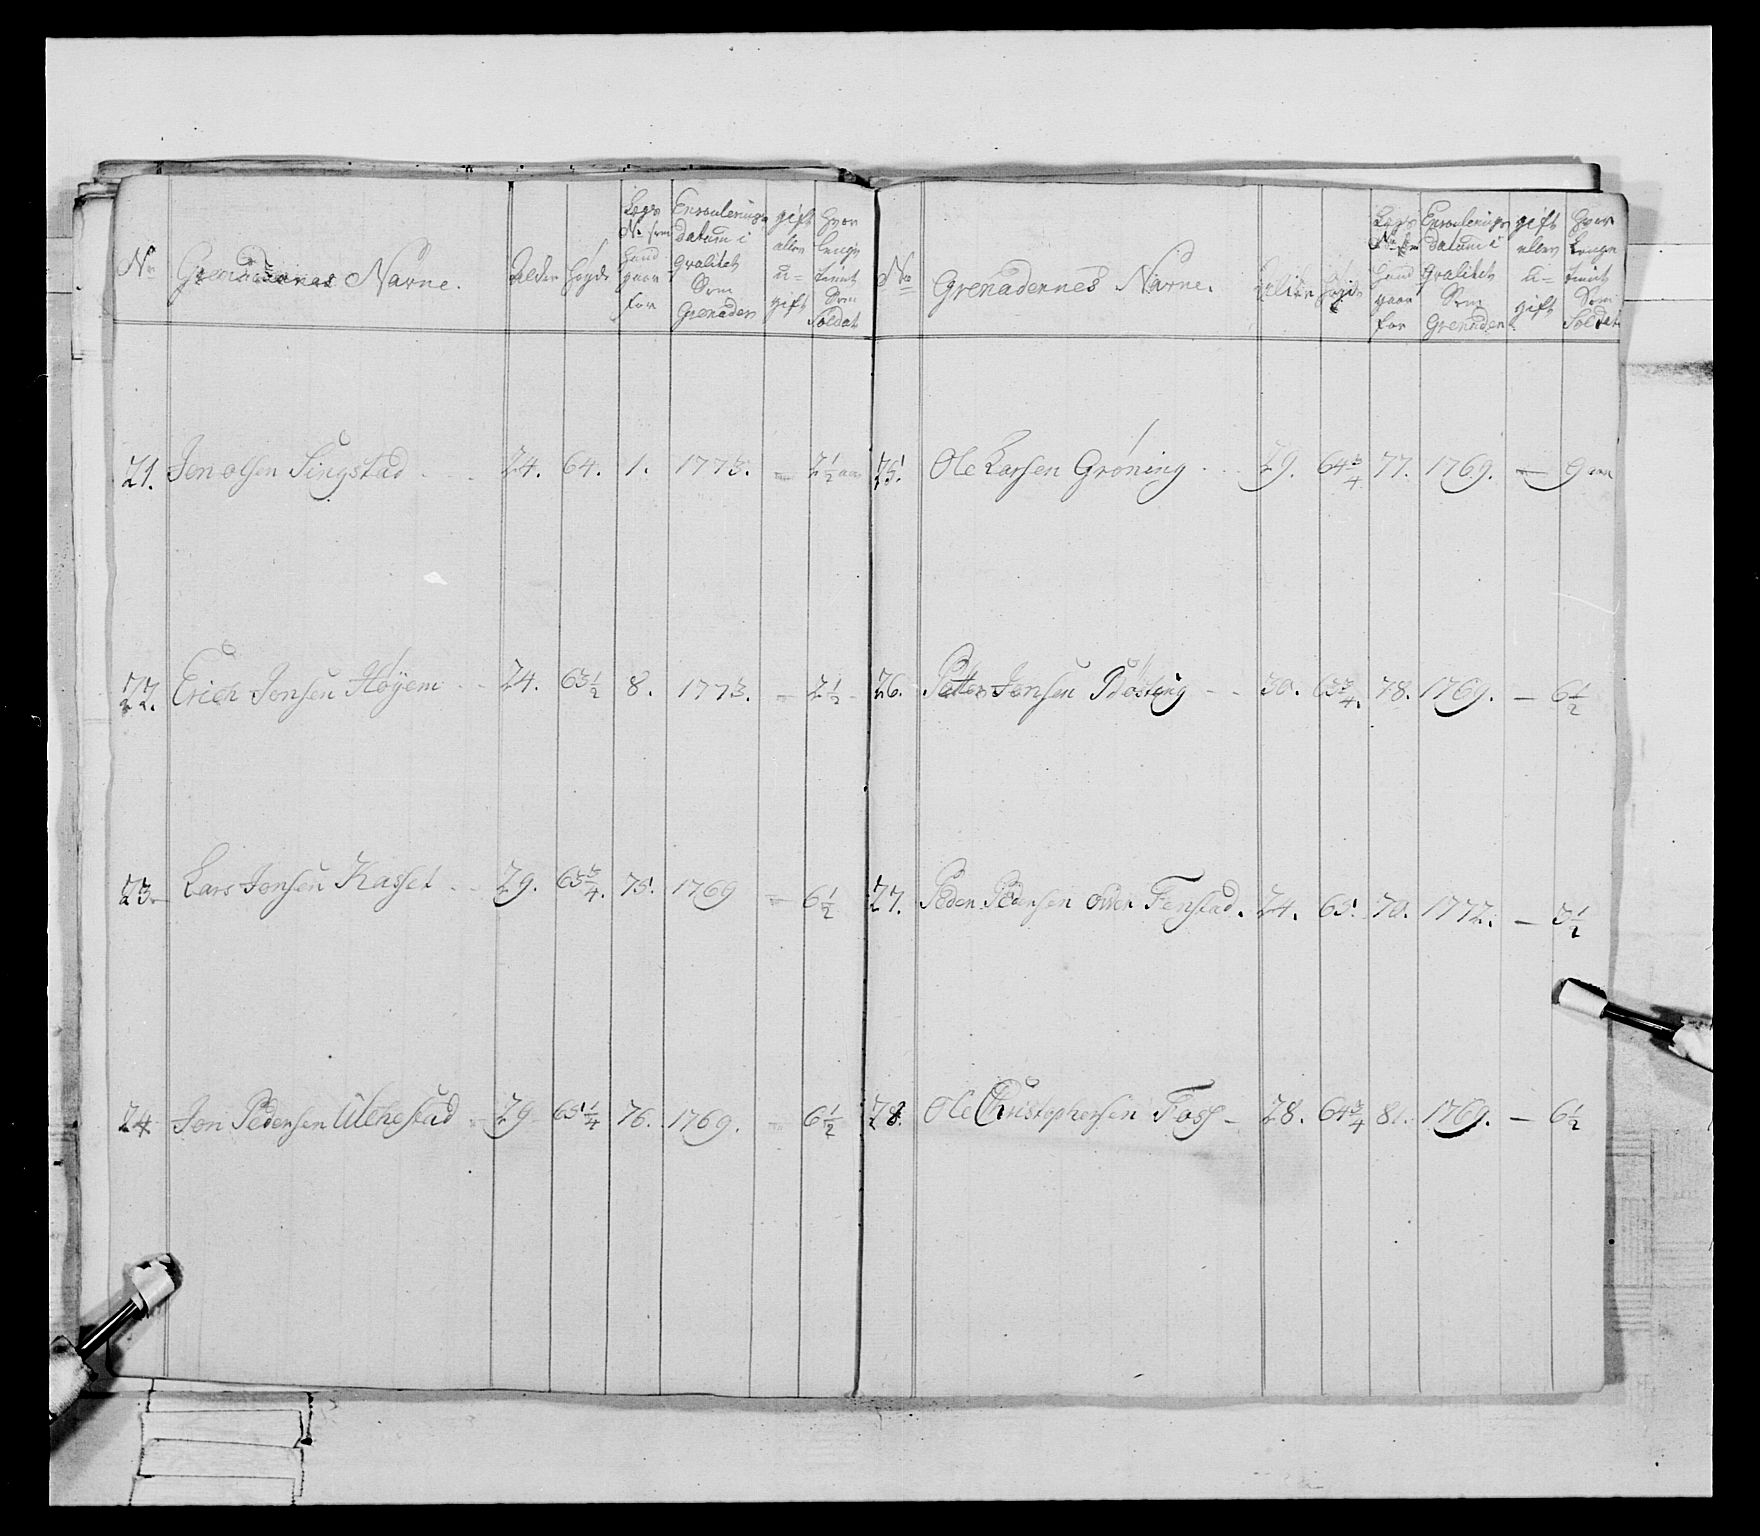 No Grenaderernes Navne. Alder Høyde Legs No som hand gaar for Enroulerings datum i Qvalitet Som Grenader gift eller u= gift hvor lenge tient Som Soldat
21. Jon Olsen Singstad 24. 64. 1. 1773. — 2½ aar
22. Erich Jonsen Høyem 24. 63½ 8. 1773. — 2½
23. Lars Jonsen Kasset 29. 63¾. 75. 1769 — 6½
24 Jon Pedersen Ulchestad 29. 65¼ 76. 1769. — 6½
No Grenadernes Navne. Alder Høyde Legs No som hand gaar for Enroulerings datum i Qvalitet Som Grenader gift eller u= gift hvor Lenge tient Som Soldat
25. Ole Larsen Grøning 29. 64¾ 77. 1769. — 9 aar
26. Petter Jonsen Røsting 30. 63¾. 78. 1769. — 6½
27. Peder Pedersen Fenstad. 24. 65. 70. 1772. — 3½
28. Ole Christophersen Foss 28. 64¾ 81. 1769. — 6½